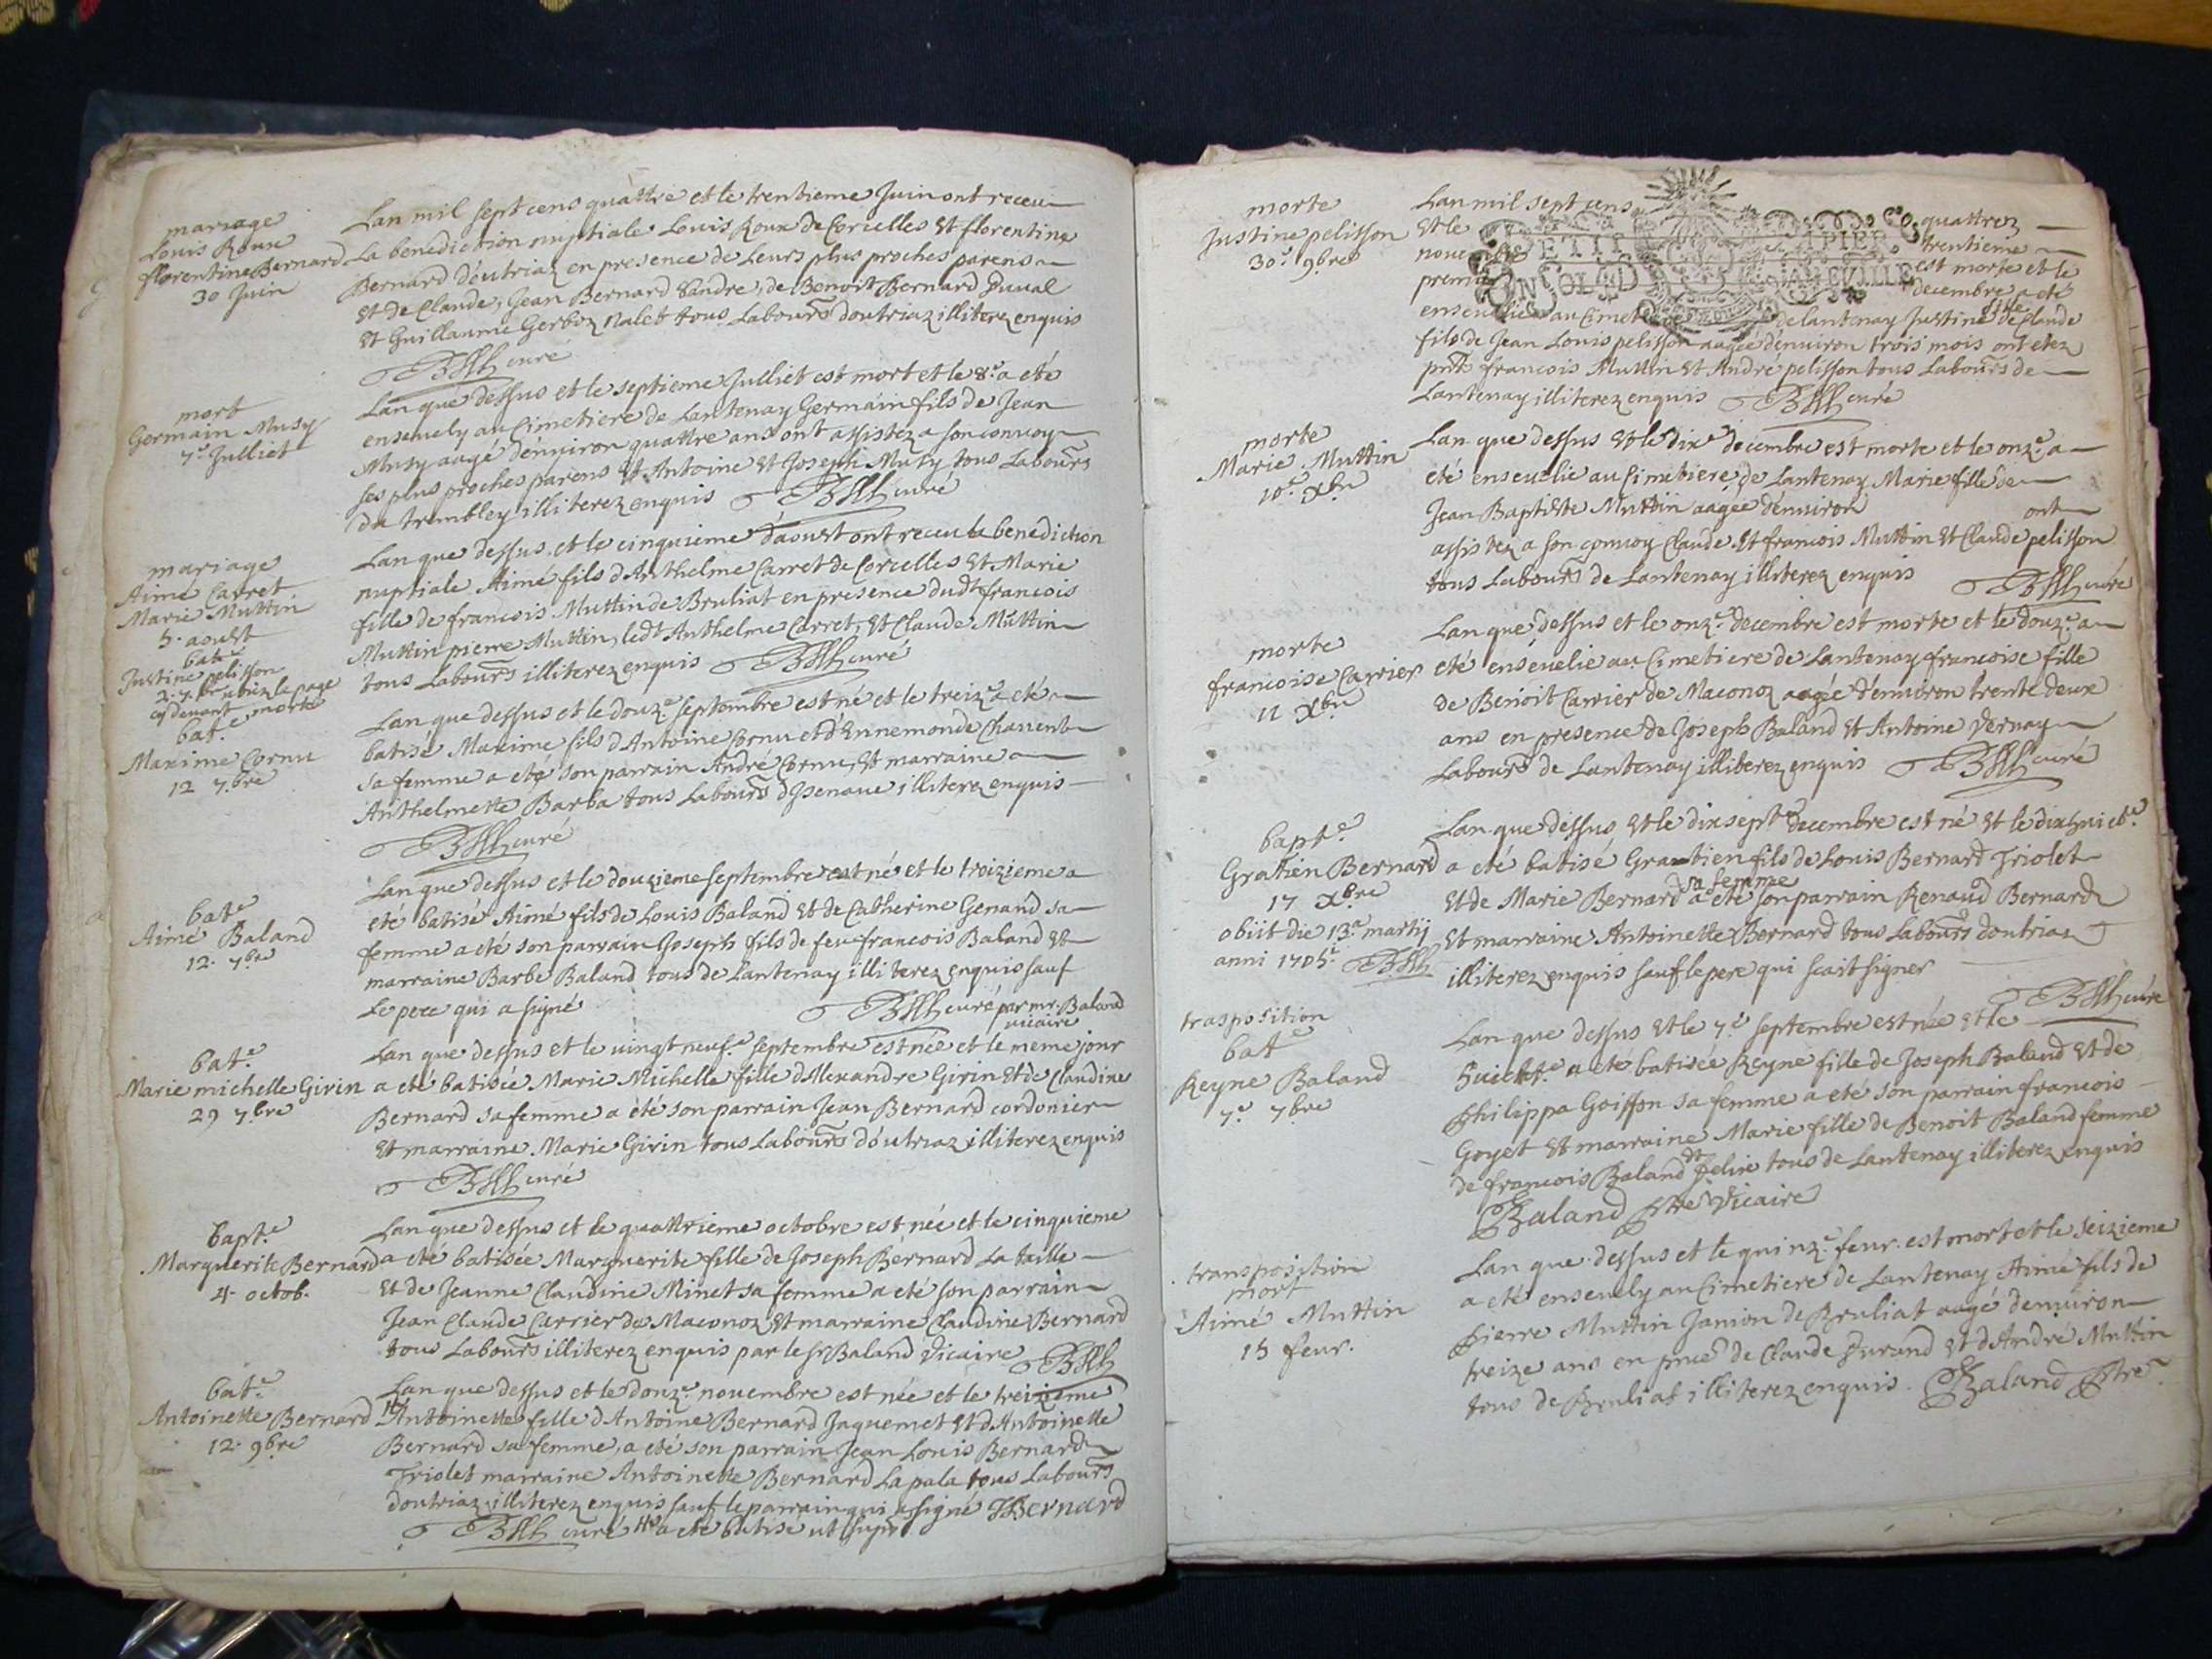 mariage
Louis Roux
florentine Bernard
30 Juin
Lan mil sept cens quattre et le trentieme Juin ont receu
La benediction nuptiale Louis Roux de Corcelles Et florentine
Bernard doutriaz en presence de Leurs plus proches parens
Et de Claude, Jean Bernard Sandre, de Benoit Bernard Duval
Et Guillaume Gerboz Nalet tous Labours doutriaz illiterez enquis
curé
mort
Germain Musy
7e Julliet
Lan que dessus et le septieme Julliet est mort et le 8e a eté
ensevely au Cimetiere de Lantenay Germain fils de Jean
Musy aagé denviron quattre ans ont assistez a son convoy
ses plus proches parens Et Antoine Et Joseph Musy tous Labours
du trembley illiterez enquis curé
mariage
Aimé Carret
Marie Muttin
5. aoust
Lan que dessus et le cinquieme daoust ont receu la benediction
nuptiale Aimé fils dAnthelme Carret de Corcelles Et Marie
fille de francois Muttin de Bruliat en presence dudt francois
Muttin pierre Muttin, ledt Anthelme Carret, Et Claude Muttin
tous Labours illiterez enquis curé
bate
Justine pelisson
cy devant morte
bat.e
Maxime Cornu
12 7.bre
Lan que dessus et le douz.e septembre est né et le treiz.e a eté
batisé Maxime fils dAntoine Cornu et dEnnemonde Chavent
sa femme a eté son parrain André Cornu, Et marraine
Anthelmette Barba tous Labours dIsenave illiterez enquis
curé
bat.e
Aimé Baland
12. 7bre
Lan que dessus et le douzieme septembre est né et le troizieme a
eté batisé Aimé fils de Louis Baland Et de Catherine Genand sa
femme a eté son parrain Joseph fils de feu francois Baland Et
marraine Barbe Baland tous de Lantenay illiterez enquis sauf
Le pere qui a signé curé par mr. Baland
vicaire
bat.e
Marie michelle Girin
29 7bre
Lan que dessus et le vingt neuf.e septembre est née et le meme jour
a eté batisée Marie Michelle fille dAlexandre Girin Et de Claudine
Bernard sa femme a été son parrain Jean Bernard cordonier
Et marraine Marie Girin tous Labours doutriaz illiterez enquis
curé
bapt.e
Marguerite Bernard
4. octob.
Lan que dessus et le quattrieme octobre est née et le cinquieme
a eté batisée Marguerite fille de Joseph Bernard La taille
Et de Jeanne Claudine Minet sa femme a eté son parrain
Jean Claude Carrier de Maconoz Et marraine Claudine Bernard
tous Labours illiterez enquis par le sr Baland Vicaire
bat.e
Antoinette Bernard
12. 9bre
Lan que dessus et le douz.e novembre est née et le treizieme
Antoinette fille dAntoine Bernard Jaquemet Et dAntoinette
Bernard sa femme, a eté son parrain Jean Louis Bernard
Triolet marraine Antoinette Bernard La pala tous Labours
doutriaz illiterez enquis sauf le parrain qui a signé JBernard
curé a eté batisé ut supr
morte
Justine pelisson
30.e 9bre
PETIT PAPIER
Lan mil sept cens quattrez
Et le trentieme
novembre est morte et le
premier decembre a eté
ensevelie au Cimetiere de lantenay Justine fille de Claude
fils de Jean Louis pelisson aagée denviron trois mois ont etez
pnts francois Muttin Et André pelisson tous Labours de
Lantenay illiterez enquis curé
morte
Marie Muttin
10.e Xbre
Lan que dessus Et le dix.e decembre est morte et le onz.e a
eté ensevelie au Cimetiere de Lantenay Marie fille de
Jean Baptiste Muttin aagée denviron ont
assistez a son convoy Claude Et francois Muttin Et Claude pelisson
tous Labours de Lantenay illiterez enquis curé
morte
francoise Carrier
11 Xbre
Lan que dessus et le onz.e decembre est morte et le douz.e a
eté ensevelie au Cimetiere de Lantenay francoise fille
de Benoit Carrier de Maconoz aagée denviron trente deux
ans en presence de Joseph Baland Et Antoine Vernay
Labours de Lantenay illiterez enquis curé
bapt.e
Gratien Bernard
17 Xbre
obiit die 13a martij
anni 1705.
Lan que dessus Et le dix sept.e decembre est né Et le dix huict.e
a eté batisé Gratien fils de Louis Bernard Triolet
Et de Marie Bernard sa femme a eté son parrain Renaud Bernard
Et marraine Antoinette Bernard tous Labours doutriaz
illiterez enquis sauf le pere qui scait signer
curé
trasposition
bat.e
Reyne Baland
7.e 7bre
Lan que dessus Et le 7.e septembre est née Et le
huict.e a eté batisée Reyne fille de Joseph Baland Et de
Philippa Goiffon sa femme a eté son parrain francois
Goyet Et marraine Marie fille de Benoit Baland femme
de francois Baland dt felix tous de Lantenay illiterez enquis
Baland Ptre Vicaire
transposition
mort
Aimé Muttin
15 feur.
Lan que dessus et le quinz.e feur. est mort et le seizieme
a eté ensevely au Cimetiere de Lantenay Aimé fils de
Pierre Muttin Janion de Bruliat aagé denviron
treize ans en pnce de Claude Durand Et dAndré Muttin
tous de Bruliat illiterez enquis. Baland Ptre